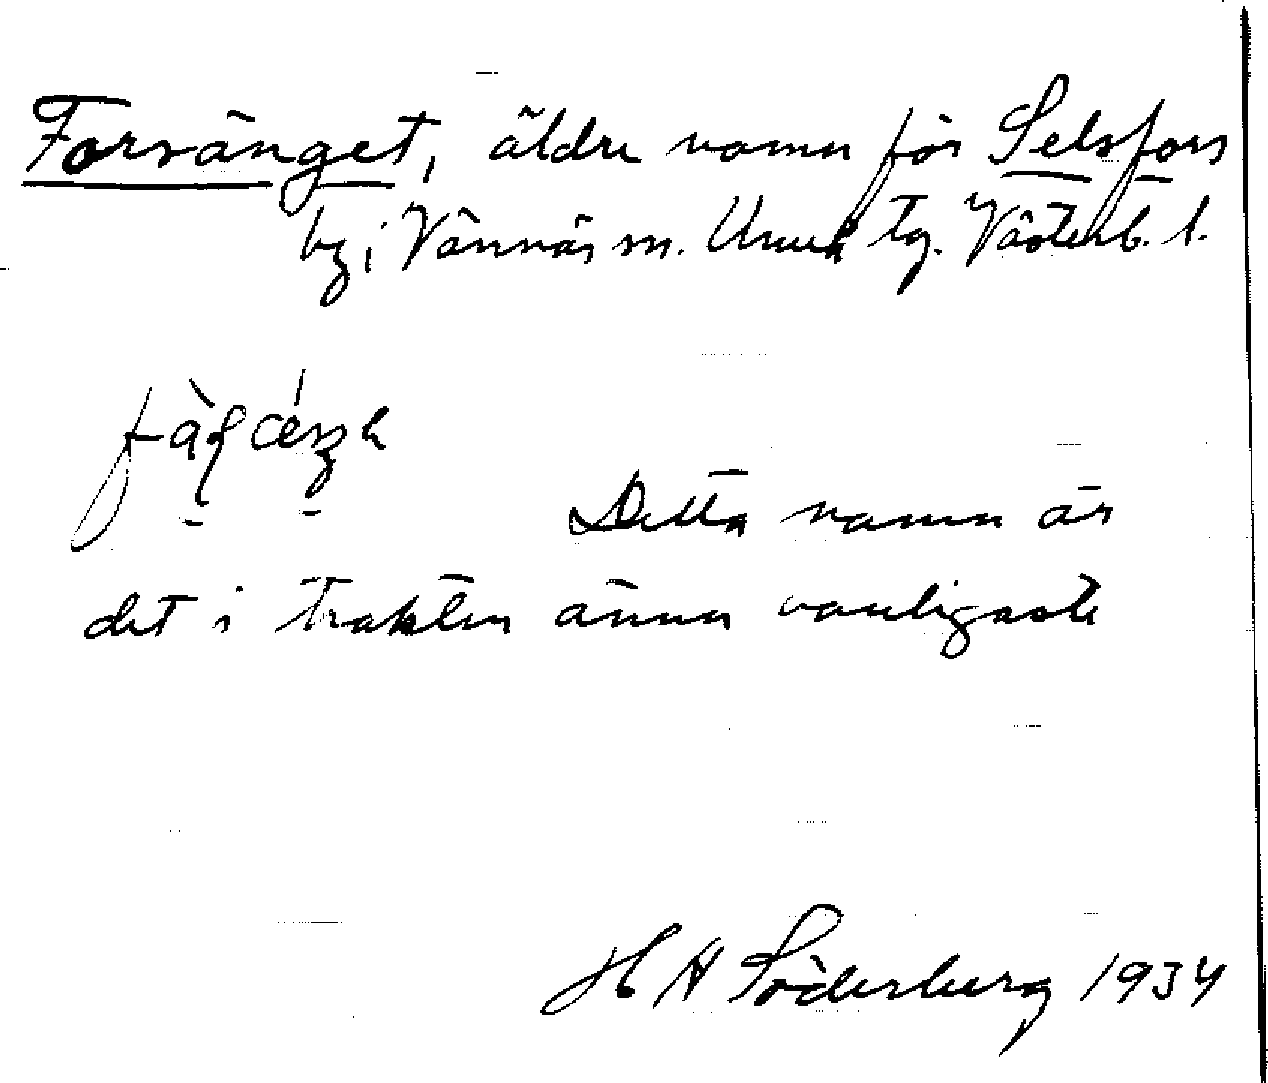 Forsänget, äldre namn för Selsfors
by i Vännäs sn. Umeå tg. Västerb. l.
Detta namn är
det i trakten ännu vanligaste
H A Söderberg 1934